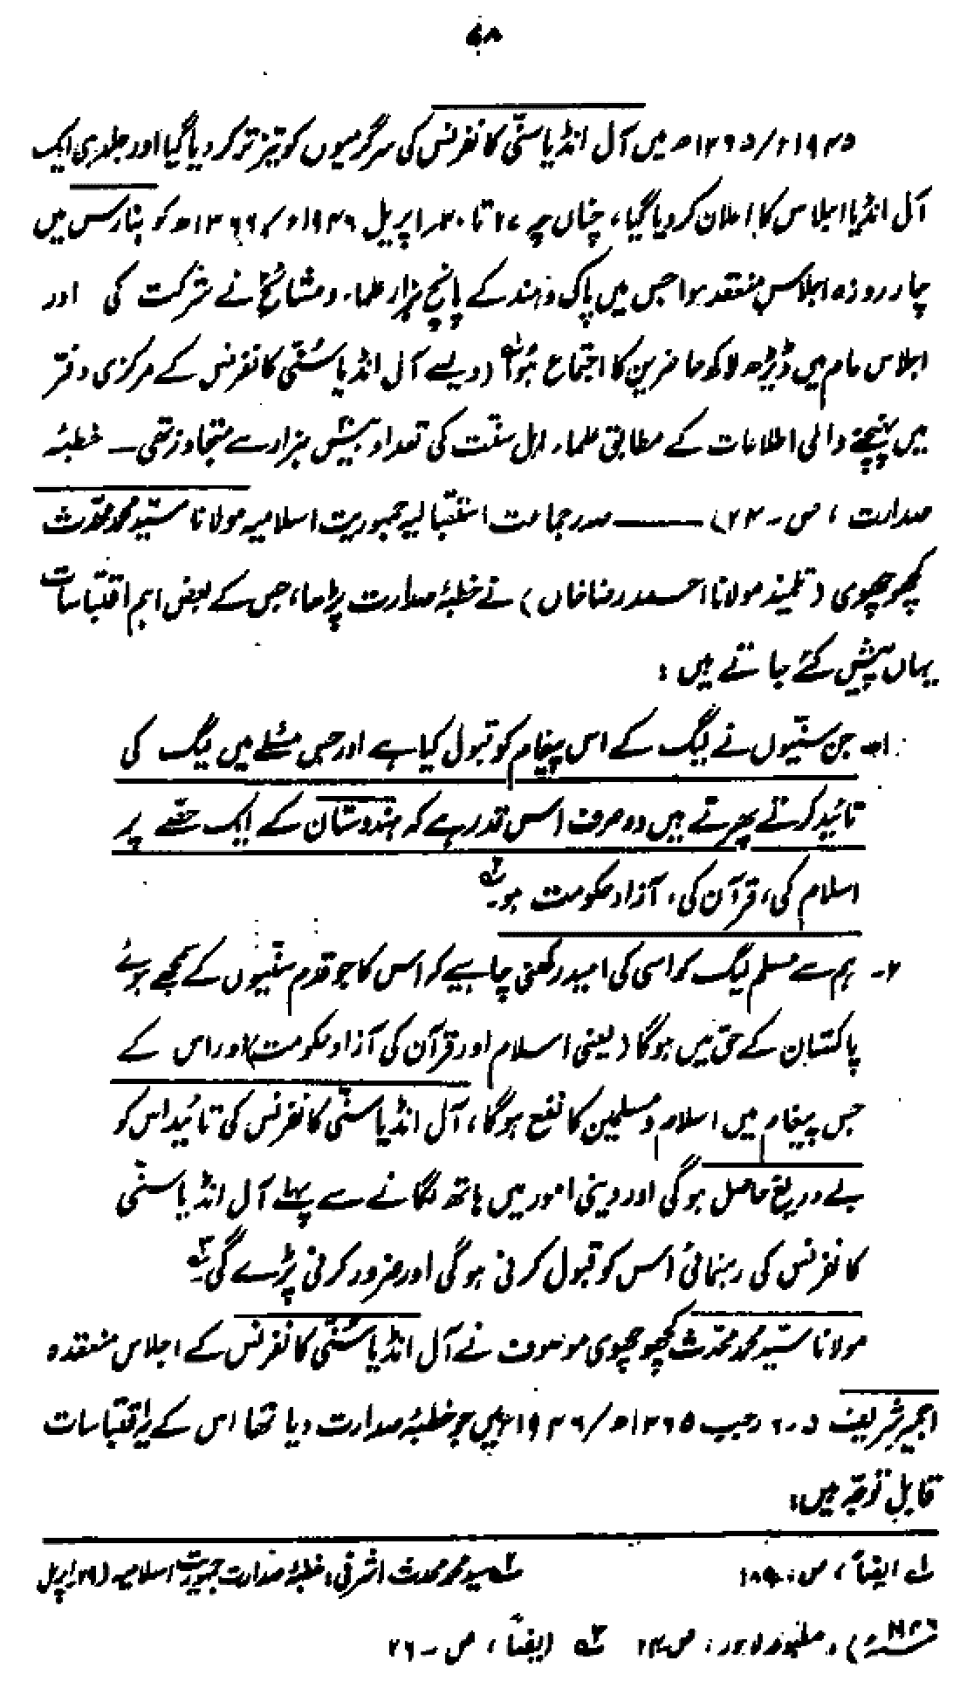 ۶۸
۱۹۴۵ء/۱۳۶۵ھ میں آل انڈیا سنّی کانفرنس کی سرگرمیوں کو تیز تر کر دیا گیا اور جلد ہی ایک
آل انڈیا اجلاس کا اعلان کر دیا گیا، چناں چہ ۲۷ تا ۳۰ اپریل ۱۹۴۶ء/۱۳۶۶ھ کو بنارس میں
چار روزہ اجلاس منعقد ہوا جس میں پاک و ہند کے پانچ ہزار علماء و مشائخ نے شرکت کی اور
اجلاس عام میں ڈیڑھ لاکھ حاضرین کا اجتماع ہُوا۱؎ (ویسے آل انڈیا سُنّی کانفرنس کے مرکزی دفتر
میں پہنچنے والی اطلاعات کے مطابق علماء اہل سنّت کی تعداد بیس ہزار سے متجاوز تھی ۔ خطبۂ
صدارت ، ص ۔ ۲۴) ——— صدر جماعت استقبالیہ جمہوریت اسلامیہ مولانا سیّد محمد محدّث
کچھوچھوی (تلمیذ مولانا احمد رضا خاں) نے خطبۂ صدارت پڑھا، جس کے بعض اہم اقتباسات
یہاں پیش کئے جاتے ہیں :
۱۔ جن سنّیوں نے لیگ کے اس پیغام کو قبول کیا ہے اور جس مسئلے میں لیگ کی
تائید کرتے پھرتے ہیں وہ صرف اس قدر ہے کہ ہندوستان کے ایک حصّے پر
اسلام کی، قرآن کی، آزاد حکومت ہو۔۲؎
۲۔ ہم سے مسلم لیگ کو اسی کی امید رکھنی چاہیے کہ اس کا جو قدم سنّیوں کے سمجھے ہوئے
پاکستان کے حق میں ہوگا (یعنی اسلام اور قرآن کی آزاد حکومت) اور اس کے
جس پیغام میں اسلام و مسلمین کا نفع ہوگا، آل انڈیا سنّی کانفرنس کی تائید اس کو
بے دریغ حاصل ہوگی اور دینی امور میں ہاتھ لگانے سے پہلے آل انڈیا سنّی
کانفرنس کی رہنمائی اس کو قبول کرنی ہوگی اور ضرور کرنی پڑے گی۔۳؎
مولانا سیّد محمد محدّث کچھوچھوی موصوف نے آل انڈیا سُنّی کانفرنس کے اجلاس منعقدہ
اجمیر شریف ۵۔۶ رجب ۱۳۶۵ھ/۱۹۴۶ء میں جو خطبۂ صدارت دیا تھا اس کے یہ اقتباسات
قابلِ توجّہ ہیں:
۱؎ ایضاً ، ص ۔ ۱۸۹ ۲؎ سید محمد محدث اشرفی : خطبۂ صدارت جمہوریت اسلامیہ (۲۹ اپریل
۱۹۴۶ء) ، مطبوعہ لاہور ، ص ۲۴ ۳؎ ایضاً ، ص ۔ ۲۶